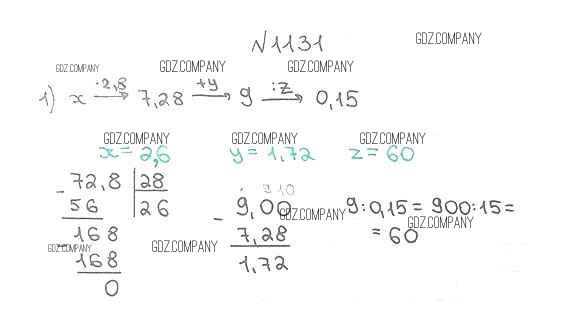 №1131
GDZ.COMPANY
GDZ.COMPANY GDZ.COMPANY GDZ.COMPANY
1) x ·2,8→ 7,28 +y→ 9 :z→ 0,15
GDZ.COMPANY GDZ.COMPANY GDZ.COMPANY
x = 2,6 y = 1,72 z = 60
- 72,8 | 28
56 | 26
- 168
168
0
9 10
- 9,00
7,28
1,72
GDZ.COMPANY
9:0,15 = 900:15 =
= 60
GDZ.COMPANY
GDZ.COMPANY GDZ.COMPANY